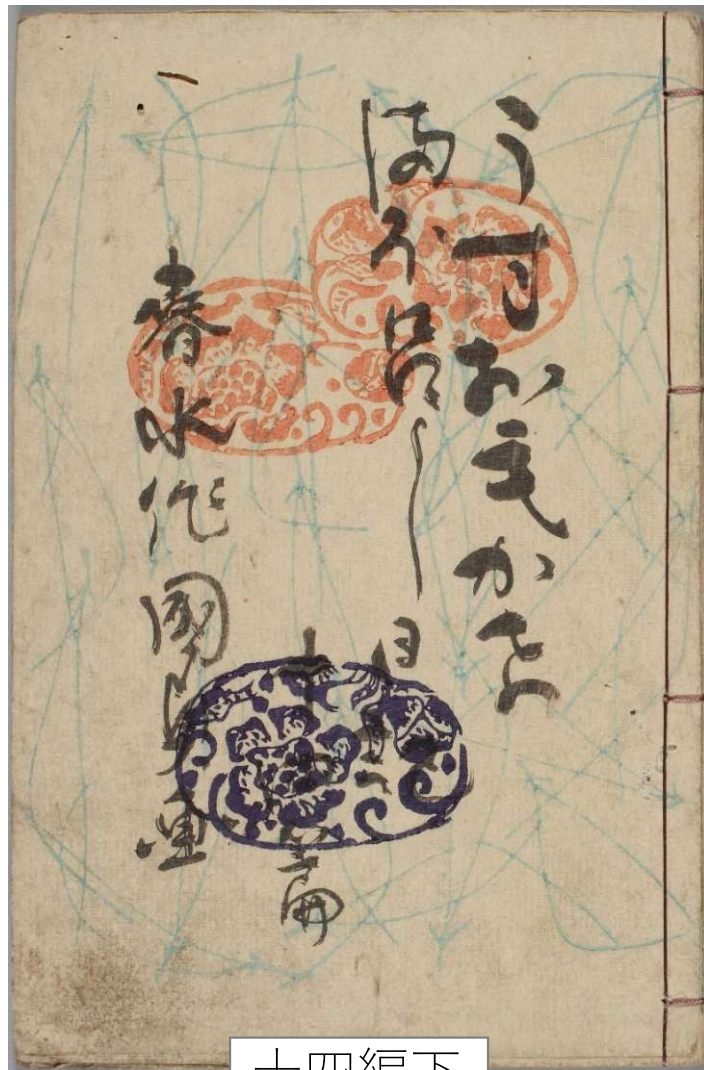 うすおもかけ
まほろし日記
十四篇
春水作 國貞畫
十四編下